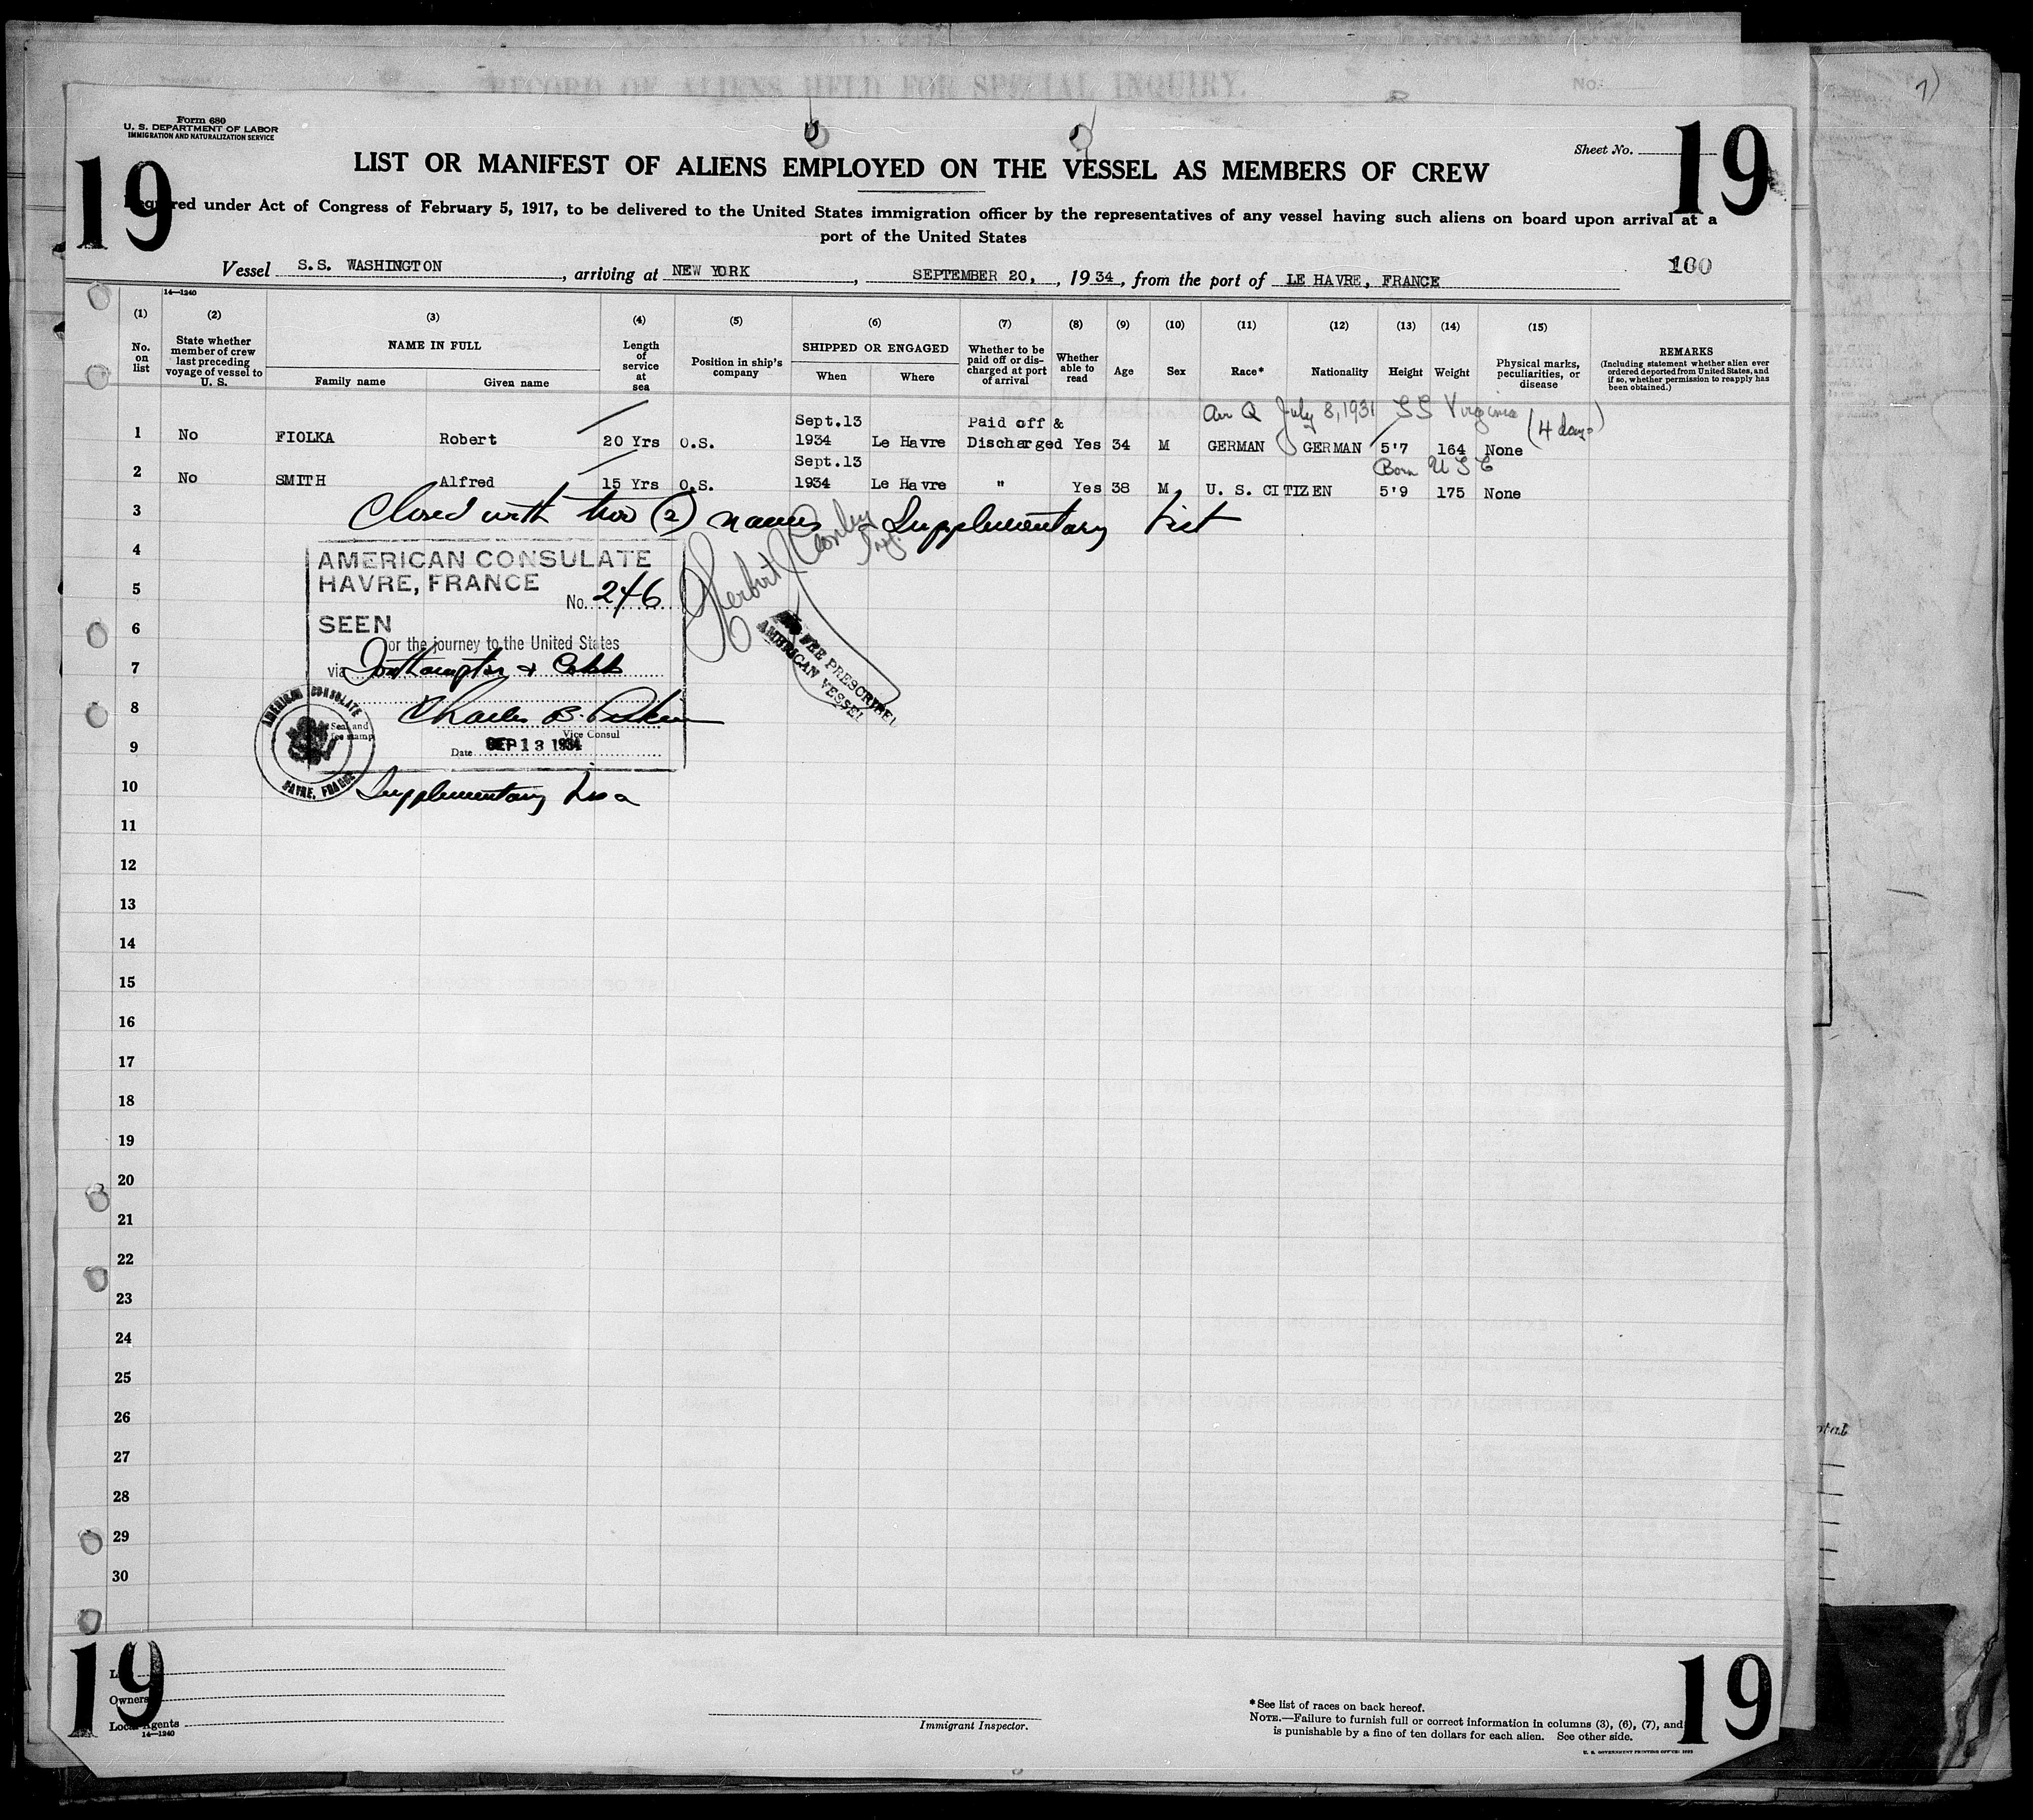 RECORD OF ALIENS HELD FOR SPECIAL INQUIRY.
No.
Form 680
U. S. DEPARTMENT OF LABOR
IMMIGRATION AND NATURALIZATION SERVICE
19
19
Sheet No.
LIST OR MANIFEST OF ALIENS EMPLOYED ON THE VESSEL AS MEMBERS OF CREW
Required under Act of Congress of February 5, 1917, to be delivered to the United States immigration officer by the representatives of any vessel having such aliens on board upon arrival at a
port of the United States
Vessel S.S. WASHINGTON, arriving at NEW YORK, SEPTEMBER 20, , 1934, from the port of LE HAVRE, FRANCE
160
14—1240
(1) (2) (3) (4) (5) (6) (7) (8) (9) (10) (11) (12) (13) (14) (15)
No. on list
State whether member of crew last preceding voyage of vessel to U. S.
NAME IN FULL
Family name
Given name
Length of service at sea
Position in ship's company
SHIPPED OR ENGAGED
When
Where
Whether to be paid off or discharged at port of arrival
Whether able to read
Age
Sex
Race*
Nationality
Height
Weight
Physical marks, peculiarities, or disease
REMARKS
(Including statement whether alien ever ordered deported from United States, and if so, whether permission to reapply has been obtained.)
July 8, 1931 SS Virginia (4 days)
Sept.13 Paid off &
1 No FIOLKA Robert 20 Yrs O.S. 1934 Le Havre Discharged Yes 34 M GERMAN GERMAN 5'7 164 None
Sept.13 Born U S C
2 No SMITH Alfred 15 Yrs O.S. 1934 Le Havre " Yes 38 M U. S. CITIZEN 5'9 175 None
3 Closed with two (2) names Supplementary List
4
5
6
7
8
9
10
11
12
13
14
15
16
17
18
19
20
21
22
23
24
25
26
27
28
29
30
AMERICAN CONSULATE
HAVRE, FRANCE
No. 246
SEEN
for the journey to the United States
via Southampton & Cobh
Charles B.
Vice Consul
Date SEP 13 1934
AMERICAN CONSULATE
HAVRE, FRANCE
Seal and
fee stamp
Supplementary Visa
Herbert
NO FEE PRESCRIBED
AMERICAN VESSEL
19
19
Owners
Local Agents
14—1240
Immigrant Inspector.
*See list of races on back hereof.
NOTE.—Failure to furnish full or correct information in columns (3), (6), (7), and
is punishable by a fine of ten dollars for each alien. See other side.
U. S. GOVERNMENT PRINTING OFFICE: